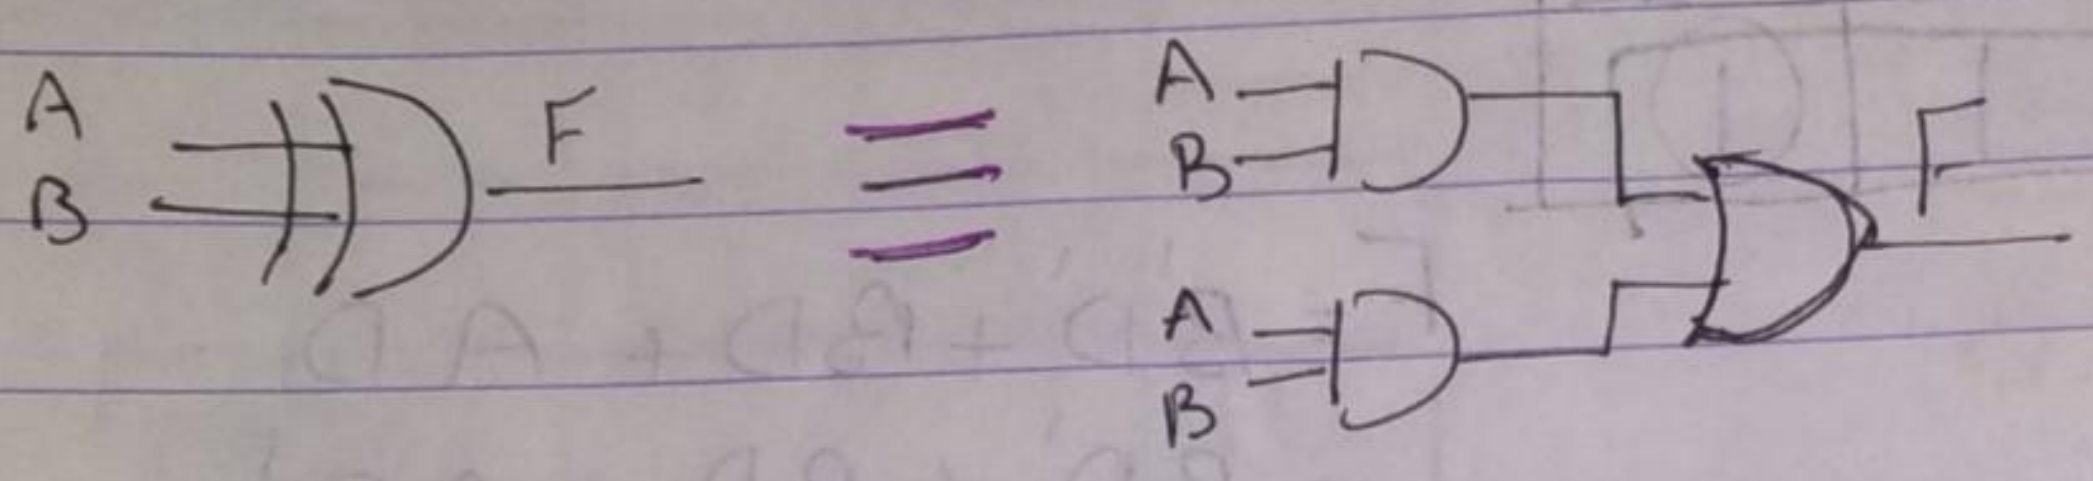 A
B
F
≡
A
B
A
B
F